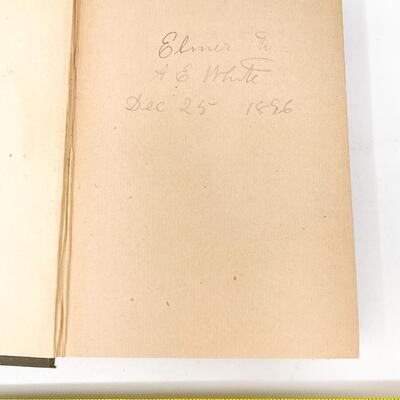 Elmer to
A E White
Dec 25 1896